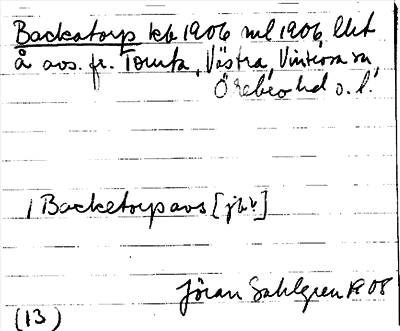 Backatorp kb 1906 ml 1906, lht
å avs. fr. Tomta, Västra, Vintrosa sn,
Örebro hd o. l.
/ Backetorp avs [jb v]
Jöran Sahlgren 1908
(13)